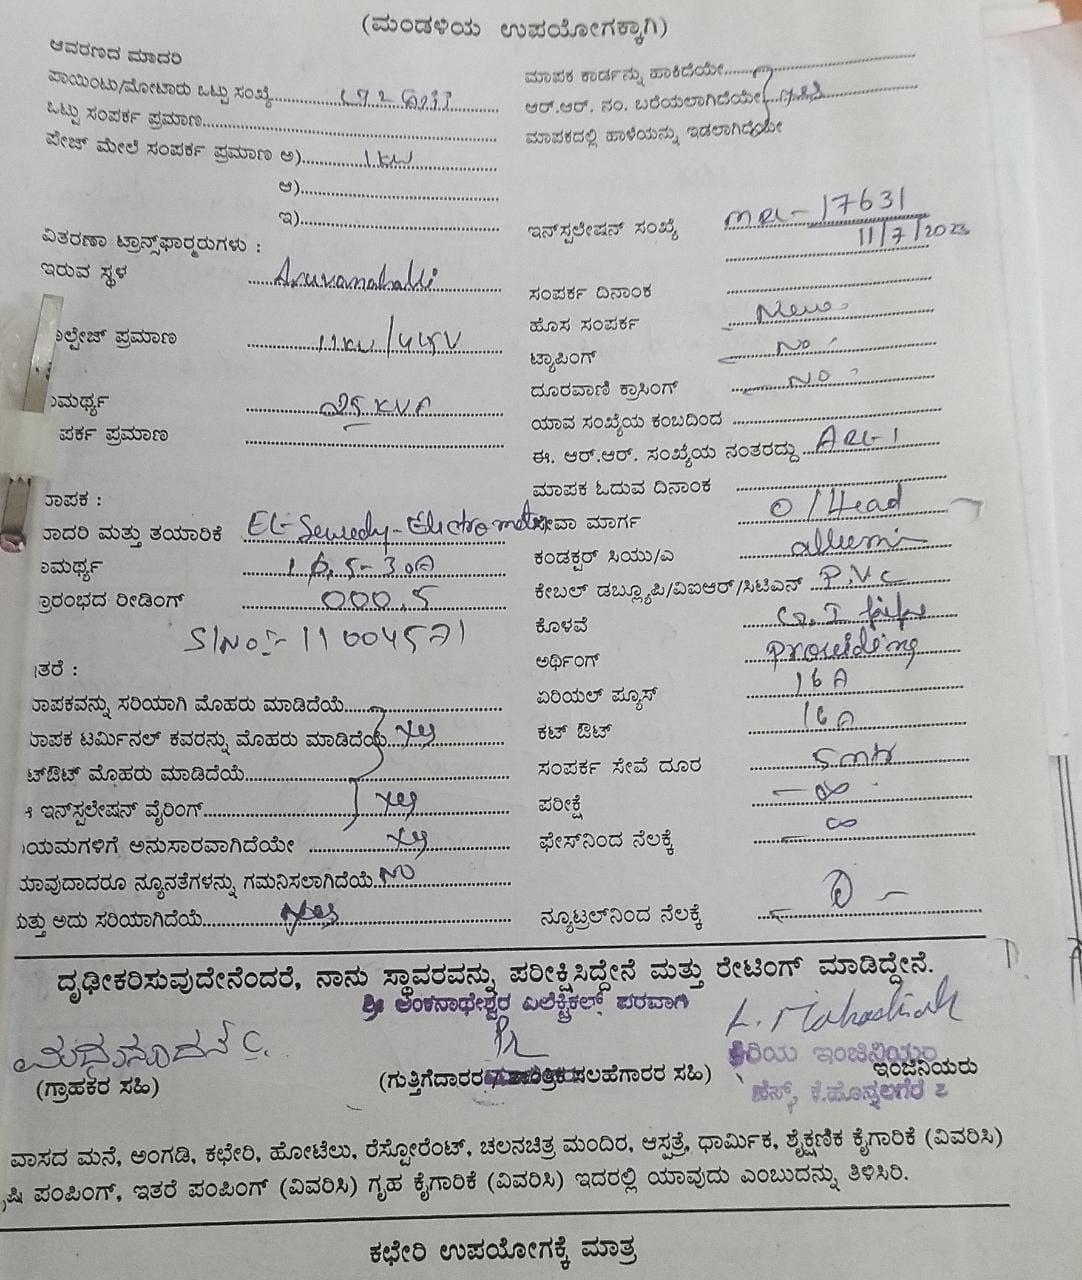 (ಮಂಡಳಿಯ ಉಪಯೋಗಕ್ಕಾಗಿ)
ಆವರಣದ ಮಾದರಿ
ಪಾಯಿಂಟು/ಮೋಟಾರು ಒಟ್ಟು ಸಂಖ್ಯೆ
ಒಟ್ಟು ಸಂಪರ್ಕ ಪ್ರಮಾಣ
ಪೇಜ್ ಮೇಲೆ ಸಂಪರ್ಕ ಪ್ರಮಾಣ ಅ) 1 KW
ಆ)
ಇ)
ವಿತರಣಾ ಟ್ರಾನ್ಸ್‌ಫಾರ್‍ಮರುಗಳು :
ಇರುವ ಸ್ಥಳ Aruvanahalli
ಲ್ಟೇಜ್ ಪ್ರಮಾಣ 11KV/
ಮರ್ಥ್ಯ 25 KVA
ಪರ್ಕ ಪ್ರಮಾಣ
ಾಪಕ :
ಾದರಿ ಮತ್ತು ತಯಾರಿಕೆ El-Sewedy-Electrometer
ಾಮರ್ಥ್ಯ 5-30A
್ರಾರಂಭದ ರೀಡಿಂಗ್ 000.5
S/No:- 11004571
ತರೆ :
ಾಪಕವನ್ನು ಸರಿಯಾಗಿ ಮೊಹರು ಮಾಡಿದೆಯೆ
ಾಪಕ ಟರ್ಮಿನಲ್ ಕವರನ್ನು ಮೊಹರು ಮಾಡಿದೆಯೆ Yes
ಟ್‌ಔಟ್ ಮೊಹರು ಮಾಡಿದೆಯೆ
ಇನ್‌ಸ್ಟಲೇಷನ್ ವೈರಿಂಗ್ Yes
ಯಮಗಳಿಗೆ ಅನುಸಾರವಾಗಿದೆಯೇ Yes
ಯಾವುದಾದರೂ ನ್ಯೂನತೆಗಳನ್ನು ಗಮನಿಸಲಾಗಿದೆಯೆ NO
ಮತ್ತು ಅದು ಸರಿಯಾಗಿದೆಯೆ Yes
ಮಾಪಕ ಕಾರ್ಡನ್ನು ಹಾಕಿದೆಯೇ
ಆರ್.ಆರ್. ನಂ. ಬರೆಯಲಾಗಿದೆಯೇ Yes
ಮಾಪಕದಲ್ಲಿ ಹಾಳೆಯನ್ನು ಇಡಲಾಗಿದೆಯೇ
ಇನ್‌ಸ್ಟಲೇಷನ್ ಸಂಖ್ಯೆ 17631
11/7/2023
ಸಂಪರ್ಕ ದಿನಾಂಕ
ಹೊಸ ಸಂಪರ್ಕ New
ಟ್ಯಾಪಿಂಗ್ No
ದೂರವಾಣಿ ಕ್ರಾಸಿಂಗ್ NO
ಯಾವ ಸಂಖ್ಯೆಯ ಕಂಬದಿಂದ
ಈ. ಆರ್.ಆರ್. ಸಂಖ್ಯೆಯ ನಂತರದ್ದು
ಮಾಪಕ ಓದುವ ದಿನಾಂಕ
ಸೇವಾ ಮಾರ್ಗ O/Head
ಕಂಡಕ್ಟರ್ ಸಿಯು/ಎ allumi
ಕೇಬಲ್ ಡಬ್ಲ್ಯೂಪಿ/ವಿಐಆರ್/ಸಿಟಿಎಸ್ P.V.C
ಕೊಳವೆ G.I pipe
ಅರ್ಥಿಂಗ್ Providing
ಏರಿಯಲ್ ಫ್ಯೂಸ್ 16 A
ಕಟ್ ಔಟ್ 16 A
ಸಂಪರ್ಕ ಸೇವೆ ದೂರ 5 mtr
ಪರೀಕ್ಷೆ ∞
ಫೇಸ್‌ನಿಂದ ನೆಲಕ್ಕೆ ∞
ನ್ಯೂಟ್ರಲ್‌ನಿಂದ ನೆಲಕ್ಕೆ
ದೃಢೀಕರಿಸುವುದೇನೆಂದರೆ, ನಾನು ಸ್ಥಾವರವನ್ನು ಪರೀಕ್ಷಿಸಿದ್ದೇನೆ ಮತ್ತು ರೇಟಿಂಗ್ ಮಾಡಿದ್ದೇನೆ.
ಶ್ರೀ ಅಂಕನಾಥೇಶ್ವರ ಎಲೆಕ್ಟ್ರಿಕಲ್ಸ್ ಪರವಾಗಿ
ಮಧುಸೂದನ್ C.
(ಗ್ರಾಹಕರ ಸಹಿ) (ಗುತ್ತಿಗೆದಾರರ ಸಲಹೆಗಾರರ ಸಹಿ) ಇಂಜಿನಿಯರು
ಕಿರಿಯ ಇಂಜಿನಿಯರು
ವಾಸದ ಮನೆ, ಅಂಗಡಿ, ಕಛೇರಿ, ಹೋಟೆಲು, ರೆಸ್ಟೋರೆಂಟ್, ಚಲನಚಿತ್ರ ಮಂದಿರ, ಆಸ್ಪತ್ರೆ, ಧಾರ್ಮಿಕ, ಶೈಕ್ಷಣಿಕ ಕೈಗಾರಿಕೆ (ವಿವರಿಸಿ)
ೃಷಿ ಪಂಪಿಂಗ್, ಇತರೆ ಪಂಪಿಂಗ್ (ವಿವರಿಸಿ) ಗೃಹ ಕೈಗಾರಿಕೆ (ವಿವರಿಸಿ) ಇದರಲ್ಲಿ ಯಾವುದು ಎಂಬುದನ್ನು ತಿಳಿಸಿರಿ.
ಕಛೇರಿ ಉಪಯೋಗಕ್ಕೆ ಮಾತ್ರ